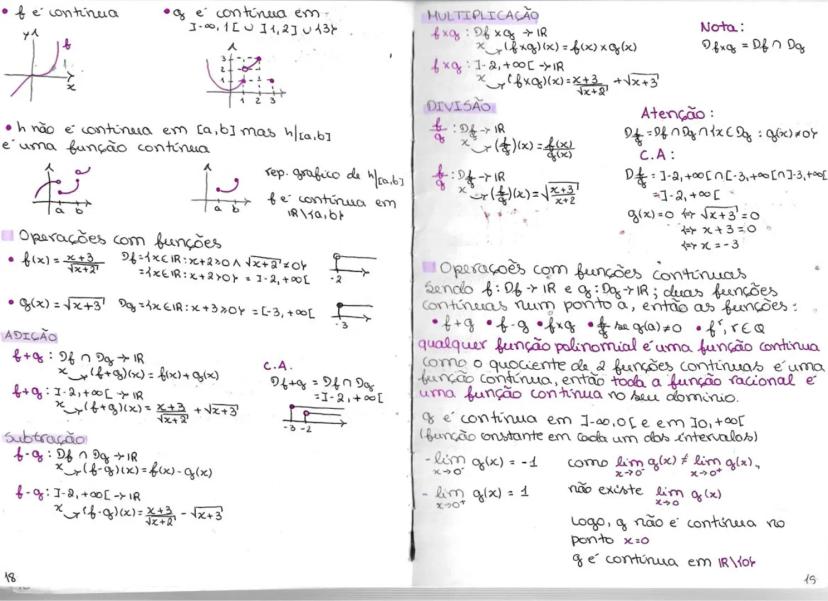 • f é contínua
• g é contínua em
]-∞,1[ ∪ ]1,2] ∪ {3}
y
f
x
3
2
1
1 2 3
• h não é contínua em [a,b] mas h|[a,b]
é uma função contínua
a b
a b
rep. gráfico de h|[a,b]
f é contínua em
IR\{a,b}
Operações com funções
• f(x) = x+3/√x+2 Df={x∈IR: x+2≥0 ∧ √x+2≠0}
={x∈IR: x+2>0} = ]-2,+∞[
-2
• g(x) = √x+3 Dg={x∈IR: x+3≥0} = [-3,+∞[
-3
ADIÇÃO
f+g : Df ∩ Dg → IR
x ↝ (f+g)(x) = f(x)+g(x)
f+g : ]-2,+∞[ → IR
x ↝ (f+g)(x) = x+3/√x+2 + √x+3
C.A.
Df+g = Df ∩ Dg
= ]-2,+∞[
-3 -2
Subtração
f-g : Df ∩ Dg → IR
x ↝ (f-g)(x)=f(x)-g(x)
f-g : ]-2,+∞[ → IR
x ↝ (f-g)(x) = x+3/√x+2 - √x+3
18
MULTIPLICAÇÃO
f×g : Df×g → IR
x ↝ (f×g)(x)=f(x)×g(x)
f×g : ]-2,+∞[ → IR
x ↝ (f×g)(x) = x+3/√x+2 + √x+3
Nota:
Df×g = Df ∩ Dg
DIVISÃO
f/g : Df/g → IR
x ↝ (f/g)(x) = f(x)/g(x)
f/g : Df/g → IR
x ↝ (f/g)(x) = √x+3/x+2
Atenção:
Df/g = Df ∩ Dg ∩ {x∈Dg : g(x)≠0}
C.A:
Df/g = ]-2,+∞[ ∩ [-3,+∞[ ∩ ]-3,+∞[
= ]-2,+∞[
g(x)=0 ⇔ √x+3 = 0
⇔ x+3 = 0
⇔ x = -3
Operações com funções contínuas
Sendo f: Df → IR e g: Dg → IR; duas funções
contínuas num ponto a, então as funções:
• f+g • f-g • f×g • f/g se g(a)≠0 • fʳ, r∈Q
qualquer função polinomial é uma função contínua
como o quociente de 2 funções contínuas é uma
função contínua, então toda a função racional é
uma função contínua no seu domínio.
g é contínua em ]-∞,0[ e em ]0,+∞[
(função constante em cada um dos intervalos)
- lim x→0⁻ g(x) = -1
- lim x→0⁺ g(x) = 1
como lim x→0⁻ g(x) ≠ lim x→0⁺ g(x),
não existe lim x→0 g(x)
Logo, g não é contínua no
ponto x=0
g é contínua em IR\{0}
19